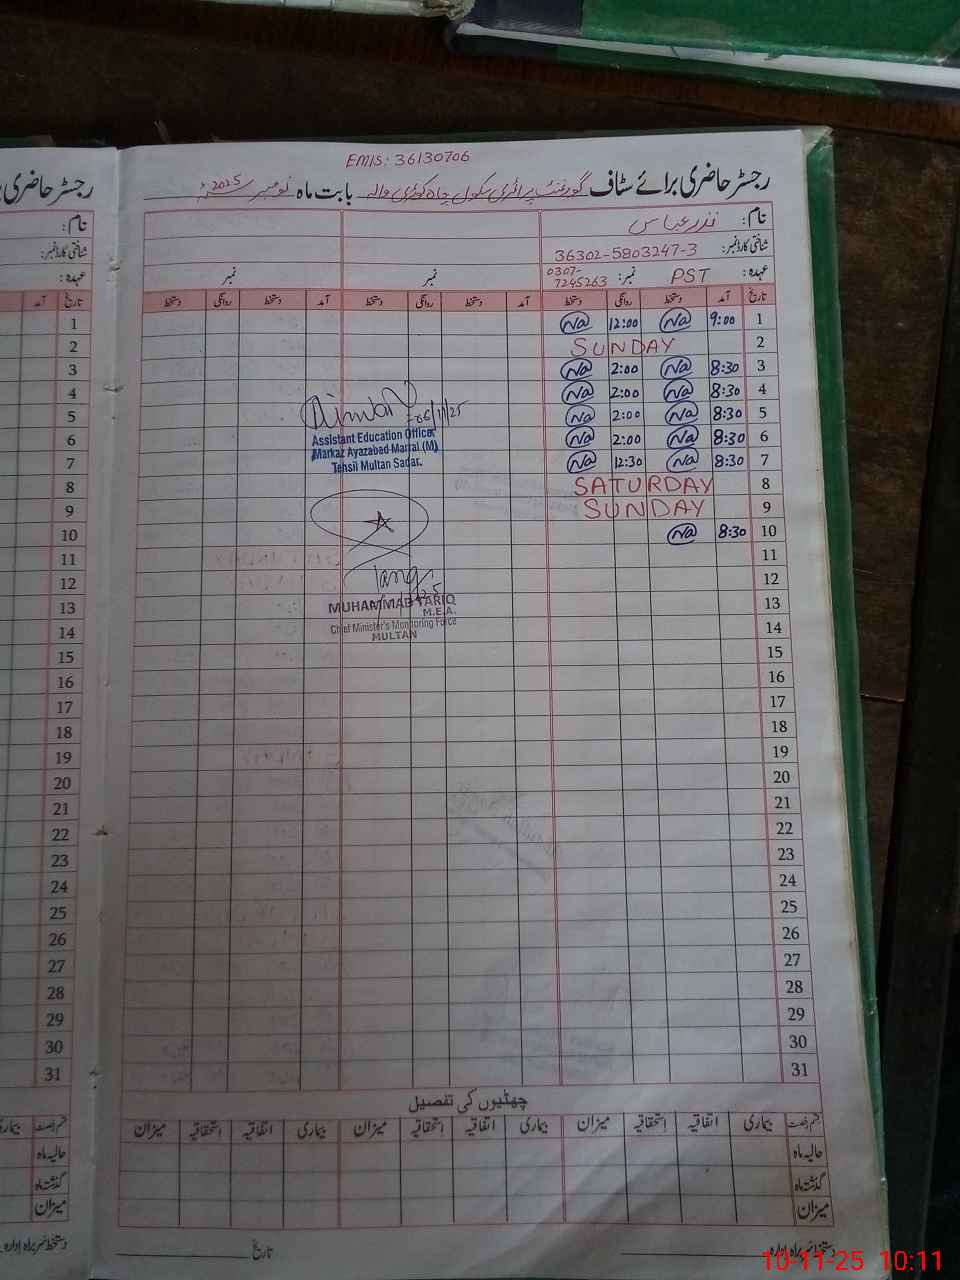 EMIS: 36130706
رجسٹر حاضری برائے سٹاف گورنمنٹ پرائمری سکول چاہ کوڑی والہ بابت ماہ نومبر 2025ء
نام: نذر عباس
شناختی کارڈ نمبر: 36302-5803247-3
عہدہ: PST نمبر: 0307-7245263 نمبر نمبر
تاریخ آمد دستخط روانگی دستخط آمد دستخط روانگی دستخط آمد دستخط روانگی دستخط
1 9:00 Na 12:00 Na
2 SUNDAY
3 8:30 Na 2:00 Na
4 8:30 Na 2:00 Na
5 8:30 Na 2:00 Na
6 8:30 Na 2:00 Na
7 8:30 Na 12:30 Na
8 SATURDAY
9 SUNDAY
10 8:30 Na
11
12
13
14
15
16
17
18
19
20
21
22
23
24
25
26
27
28
29
30
31
06/11/25
Assistant Education Officer
Markaz Ayazabad Marral (M)
Tehsil Multan Sadar.
MUHAMMAD TARIQ
M.E.A.
Chief Minister's Monitoring Force
MULTAN
چھٹیوں کی تفصیل
قسم رخصت بیماری اتفاقیہ استحقاقیہ میزان بیماری اتفاقیہ استحقاقیہ میزان بیماری اتفاقیہ استحقاقیہ میزان
حالیہ ماہ
گذشتہ ماہ
میزان
دستخط سربراہ ادارہ تاریخ
رجسٹر حاضری
نام:
شناختی کارڈ نمبر:
عہدہ:
تاریخ آمد
1
2
3
4
5
6
7
8
9
10
11
12
13
14
15
16
17
18
19
20
21
22
23
24
25
26
27
28
29
30
31
قسم رخصت بیماری
حالیہ ماہ
گذشتہ ماہ
میزان
دستخط سربراہ ادارہ
10-11-25 10:11